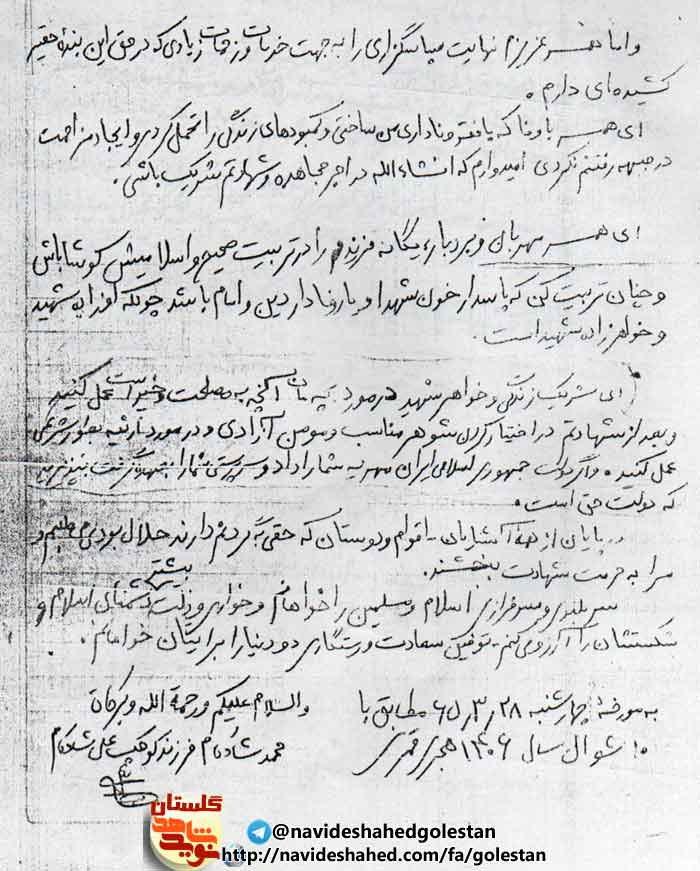 و اما همسر عزیزم نهایت سپاسگزاری را به جهت خدمات و زحمات زیادی که در حق این بندهٔ حقیر
کشیده‌ای دارم.
ای همسر با وفا که با فقر و ناداری من ساختی و کمبودهای زندگی را تحمل کردی و ایجاد مزاحمت
در جبهه رفتنم نکردی امیدوارم که انشاءالله در اجر مجاهده و شهادتم شریک باشی.
ای همسر مهربان و بردبار، یگانه فرزندم را در تربیت صحیح و اسلامیش کوشا باش
و چنان تربیت کن که پاسدار خون شهدا و یار وفادار دین و امام باشد چونکه او فرزند شهید
و خواهرزاده شهید است.
ای شریک زندگی و خواهر شهید در مورد آنچه به مصلحت و خیر است عمل کنید
و بعد از شهادتم در اختیار کردن شوهر مناسب و مومن آزادی و در مورد ارثیه بطور شرعی
عمل کنید. و اگر دولت جمهوری اسلامی ایران مهریه شما را داد و سرپرستی شما را بعهده گرفت بپذیرید
که دولت حق است.
در پایان از همه آشنایان - اقوام و دوستان که حقی به گردنم دارند حلال بودی می‌طلبم و
مرا به حرمت شهادت ببخشند.
بیشتر
سربلندی و سرفرازی اسلام و مسلمین را خواهانم و خواری و ذلت دشمنان اسلام و
شکستشان را آرزو می‌کنم - توفیق سعادت و رستگاری دو دنیا را برایتان خواهانم.
به مورخهٔ چهارشنبه ۶۵/۳/۲۸ مطابق با
۱۰ شوال سال ۱۴۰۶ هجری قمری
والسلام علیکم و رحمة الله و برکاته
محمد شادکام فرزند کوچک علی شادکام
گلستان
نوید شاهد
@navideshahedgolestan
http://navideshahed.com/fa/golestan